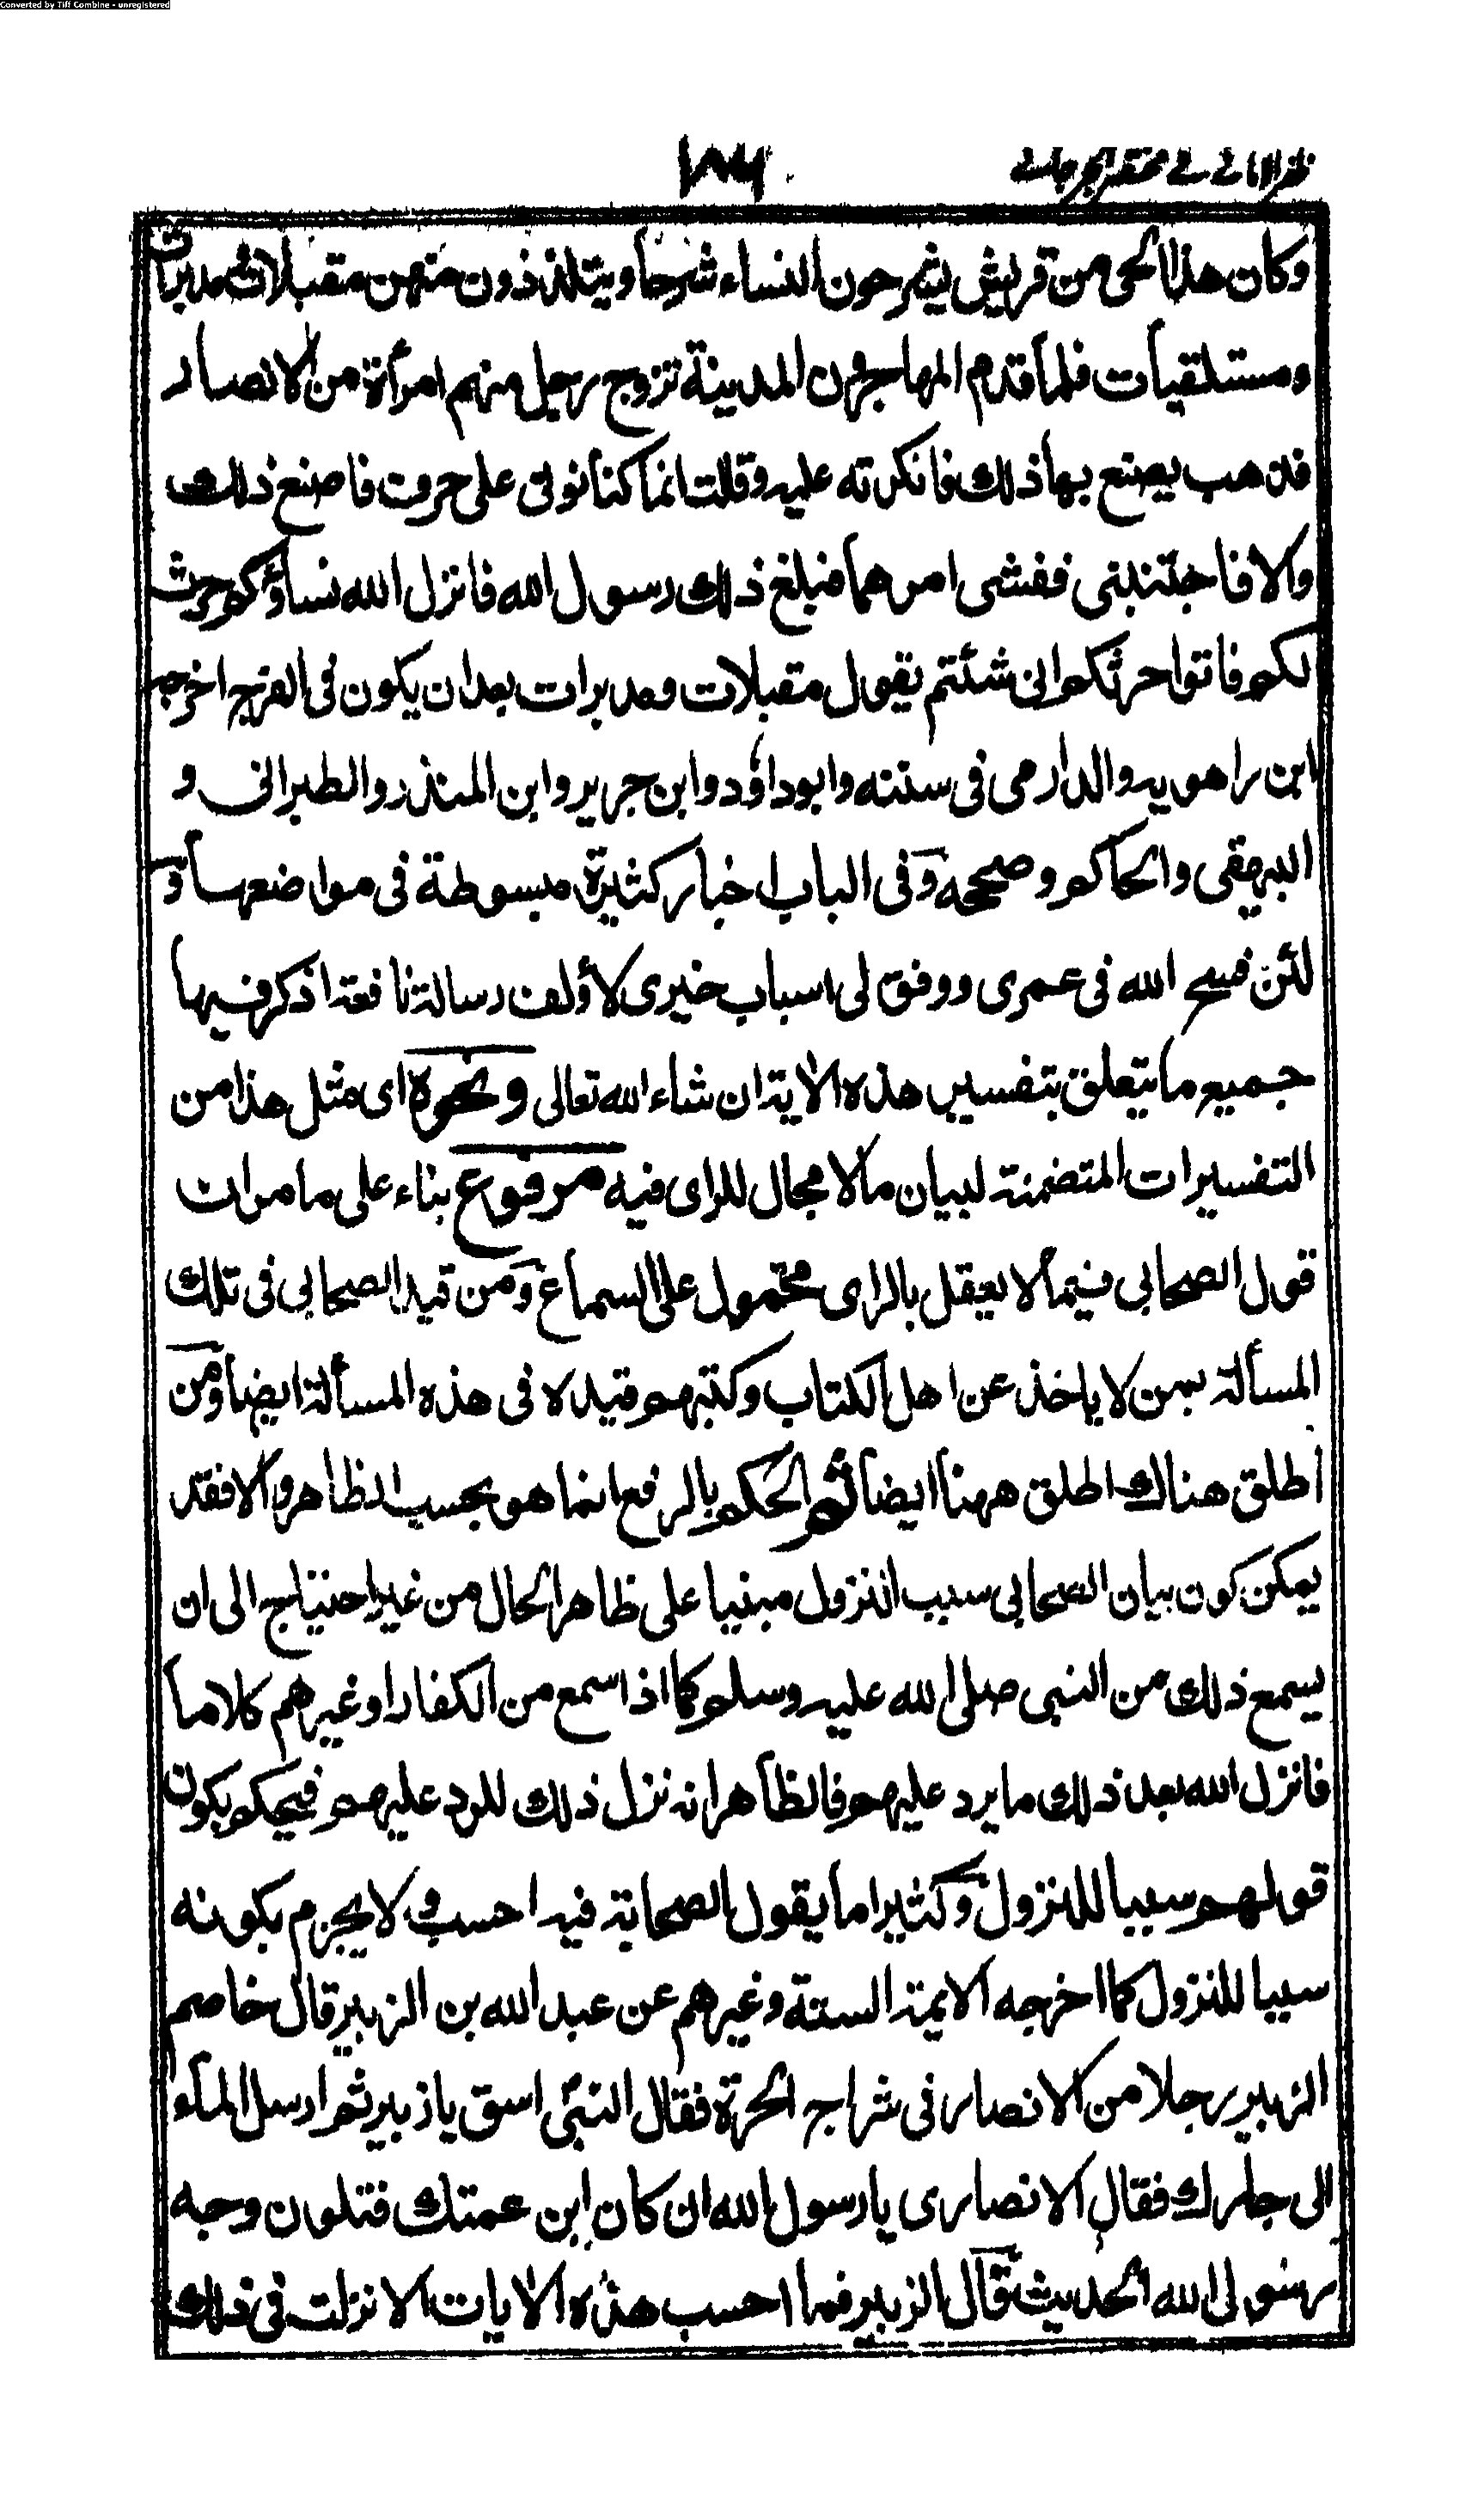 Converted by Tiff Combine - unregistered
ظفر الاماني في مختصر الجرجاني
١٨٦
وكان هذا الحى من قريش يشرحون النساء شرحا ويتلذذون منهن مقبلات ومدبرات
ومستلقيات فلما قدم المهاجرون المدينة تزوج رجل منهم امرأة من الانصار
فذهب يصنع بها ذلك فانكرته عليه وقلت انما كنا نوتى على حرف فاصنع ذلك
والا فاجتنبنى ففشى امرهما فبلغ ذلك رسول الله فانزل الله نساؤكم حرث
لكم فاتوا حرثكم انى شئتم يقول مقبلات ومدبرات بعد ان يكون فى الفرج اخرجه
ابن راهويه والدارمى فى سننه وابوداؤد وابن جرير وابن المنذر والطبرانى و
البيهقى والحاكم وصححه وفى الباب اخبار كثيرة مبسوطة فى مواضعها و
لئن فسح الله فى عمرى ووفق لى اسباب خيرى لأؤلفن رسالة نافعة اذكر فيها
جميع ما يتعلق بتفسير هذه الاية ان شاء الله تعالى ونحوه اى مثل هذا من
التفسيرات المتضمنة لبيان مالا مجال للراى فيه مرفوع بناء على ما مر ان
قول الصحابى فيما لا يعقل بالراى محمول على السماع ومن قيد الصحابى فى تلك
المسألة بمن لا ياخذ عن اهل الكتاب وكتبهم قيده فى هذه المسألة ايضا ومن
اطلق هناك اطلق ههنا ايضا ثم الحكم بالرفع انما هو بحسب الظاهر والا فقد
يمكن كون بيان الصحابى سبب النزول مبنيا على ظاهر الحال من غير احتياج الى ان
يسمع ذلك من النبى صلى الله عليه وسلم كما اذا سمع من الكفار او غيرهم كلاما
فانزل الله بعد ذلك ما يرد عليهم فالظاهر انه نزل ذلك للرد عليهم فيحكم بكون
قولهم سببا للنزول وكثيرا ما يقول الصحابة فيه احسب ولا يجزم بكونه
سببا للنزول كما اخرجه الائمة الستة وغيرهم عن عبد الله بن الزبير قال خاصم
الزبير رجلا من الانصار فى شراج الحرة فقال النبى اسق يا زبير ثم ارسل الماء
الى جارك فقال الانصارى يا رسول الله ان كان ابن عمتك فتلون وجه
رسول الله الحديث قال الزبير فما احسب هذه الايات الا نزلت فى ذلك